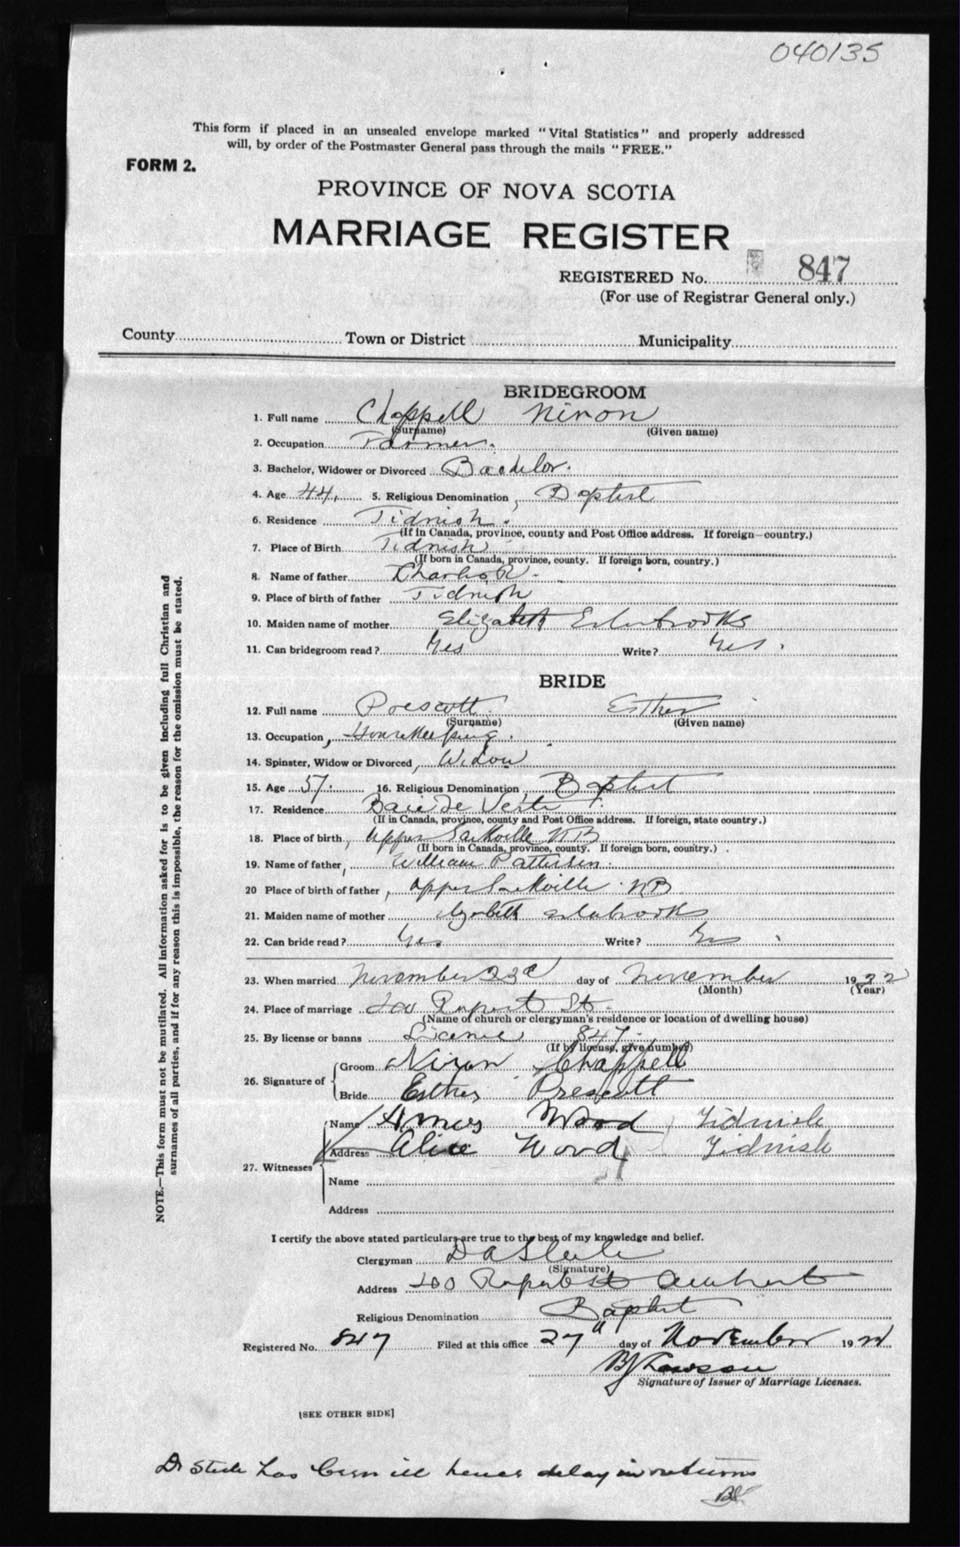 040135
This form if placed in an unsealed envelope marked "Vital Statistics" and properly addressed
will, by order of the Postmaster General pass through the mails "FREE."
FORM 2.
PROVINCE OF NOVA SCOTIA
MARRIAGE REGISTER
REGISTERED No. 847
(For use of Registrar General only.)
County Town or District Municipality
BRIDEGROOM
1. Full name Chappell Nixon
(Surname) (Given name)
2. Occupation Farmer.
3. Bachelor, Widower or Divorced Bachelor.
4. Age 44. 5. Religious Denomination, Baptist
6. Residence Tidnish.
(If in Canada, province, county and Post Office address. If foreign—country.)
7. Place of Birth Tidnish
(If born in Canada, province, county. If foreign born, country.)
8. Name of father Charles R.
9. Place of birth of father Tidnish
10. Maiden name of mother Elizabeth Estabrooks
11. Can bridegroom read? Yes Write? Yes.
BRIDE
12. Full name Prescott. Esther
(Surname) (Given name)
13. Occupation, Housekeeping.
14. Spinster, Widow or Divorced, Widow
15. Age 57. 16. Religious Denomination, Baptist
17. Residence Baie De Verte
(If in Canada, province, county and Post Office address. If foreign, state country.)
18. Place of birth, Upper Sackville NB
(If born in Canada, province, county. If foreign born, country.)
19. Name of father, William Patterson.
20 Place of birth of father, Upper Sackville NB
21. Maiden name of mother Elizabeth Estabrooks
22. Can bride read? Yes Write? Yes
23. When married November 23d day of November 1922
(Month) (Year)
24. Place of marriage 200 Rupert St.
(Name of church or clergyman's residence or location of dwelling house)
25. By license or banns License 847.
(If by license, give number)
26. Signature of Groom Nixon Chappell
Bride Esther Prescott
27. Witnesses Name Amos Wood Tidnish
Address Alice Wood Tidnish
Name
Address
I certify the above stated particulars are true to the best of my knowledge and belief.
Clergyman D A Steele
(Signature)
Address 200 Rupert St Amherst
Religious Denomination Baptist
Registered No. 847 Filed at this office 27th day of November 1922
Lawson
Signature of Issuer of Marriage Licenses.
[SEE OTHER SIDE]
Dr Steele has been ill hence delay in returns
NOTE.—This form must not be mutilated. All information asked for is to be given including full Christian and
surnames of all parties, and if for any reason this is impossible, the reason for the omission must be stated.